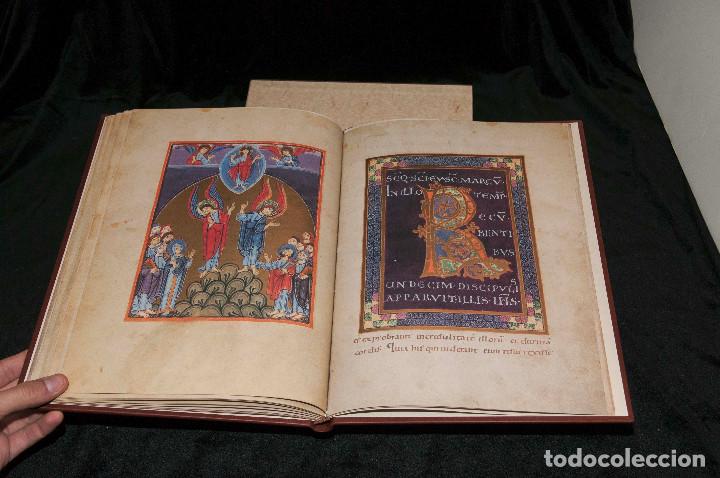 SEQ. SCI EVSC MARCV.
IN ILLO TEMP.
RECV
BENTI
BVS
UNDECIM. DISCIPVLIS
APPARVIT ILLIS. IHS.
et exprobravit incredulitatē illorū et duritiā
cordis. Quia his qui viderant eum resurrexisse
todocoleccion
todocoleccion.net